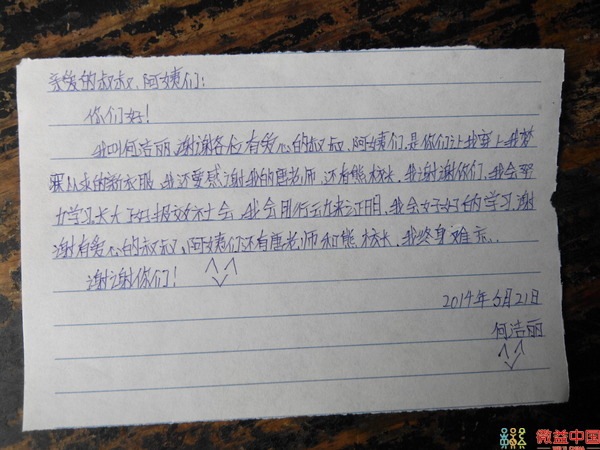 亲爱的叔叔、阿姨们:
你们好!
我叫何洁丽,谢谢各位有爱心的叔叔、阿姨们,是你们让我穿上我梦
寐以求的新衣服。我还要感谢我的唐老师,还有熊校长,我谢谢你们,我会努
力学习,长大了好报效社会,我会用行动来证明,我会好好的学习,谢
谢有爱心的叔叔、阿姨们还有唐老师和熊校长,我终身难忘。
谢谢你们!
2014年6月21日
何洁丽
微益中国